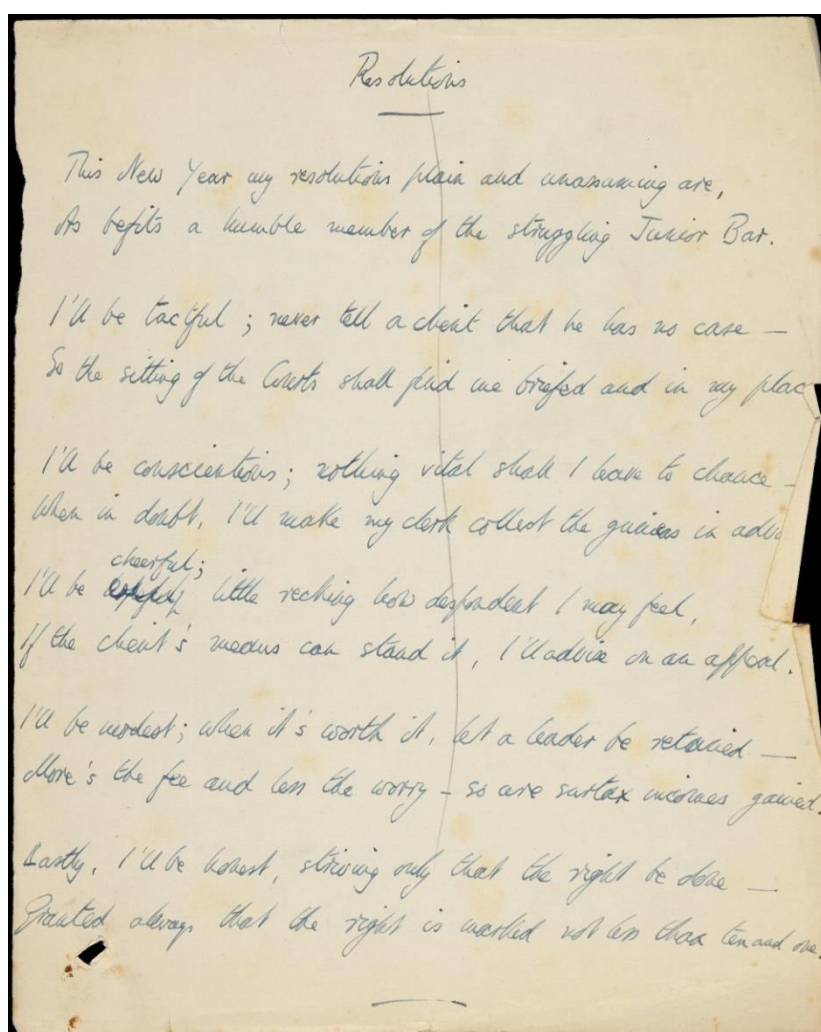 Resolutions
This New Year my resolutions plain and unassuming are,
As befits a humble member of the struggling Junior Bar.
I'll be tactful; never tell a client that he has no case —
So the sitting of the Courts shall find me briefed and in my plac
I'll be conscientious; nothing vital shall I leave to chance —
When in doubt, I'll make my clerk collect the guineas in adva
cheerful;
I'll be little recking how despondent I may feel,
If the client's means can stand it, I'll advise on an appeal.
I'll be modest; when it's worth it, let a leader be retained —
More's the fee and less the worry – so are surtax incomes gained.
Lastly, I'll be honest, striving only that the right be done —
Granted always that the right is marked not less than ten and one.